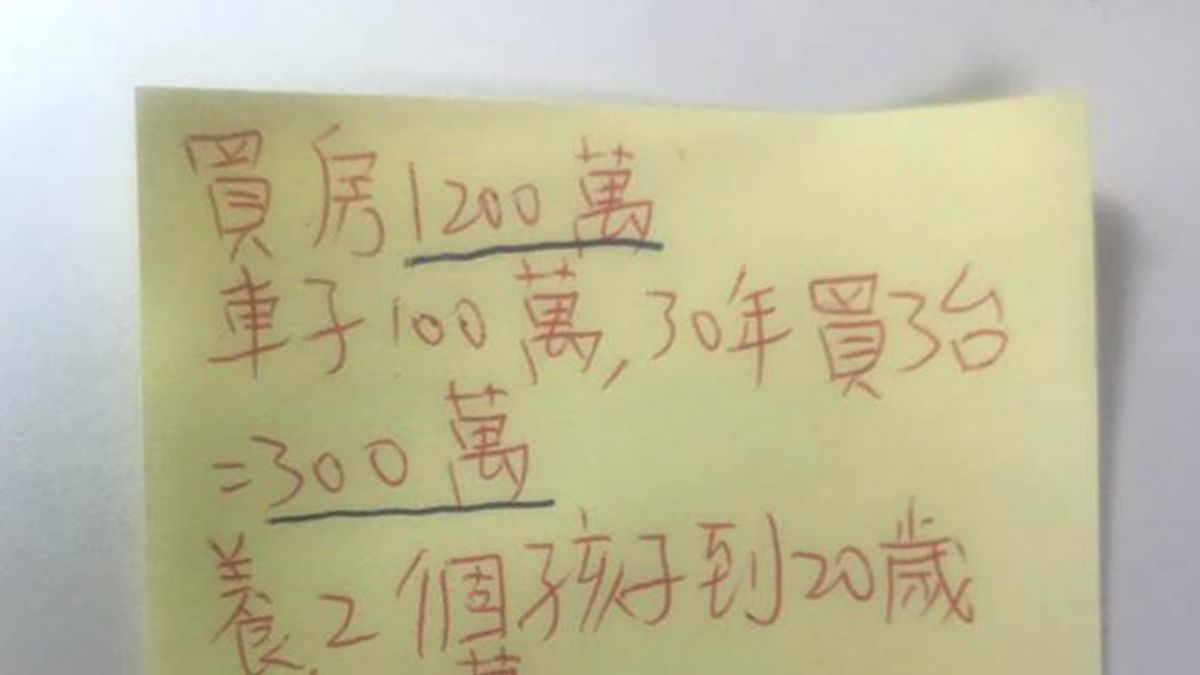 買房1200萬
車子100萬,30年買3台
=300萬
養2個孩子到20歲
萬